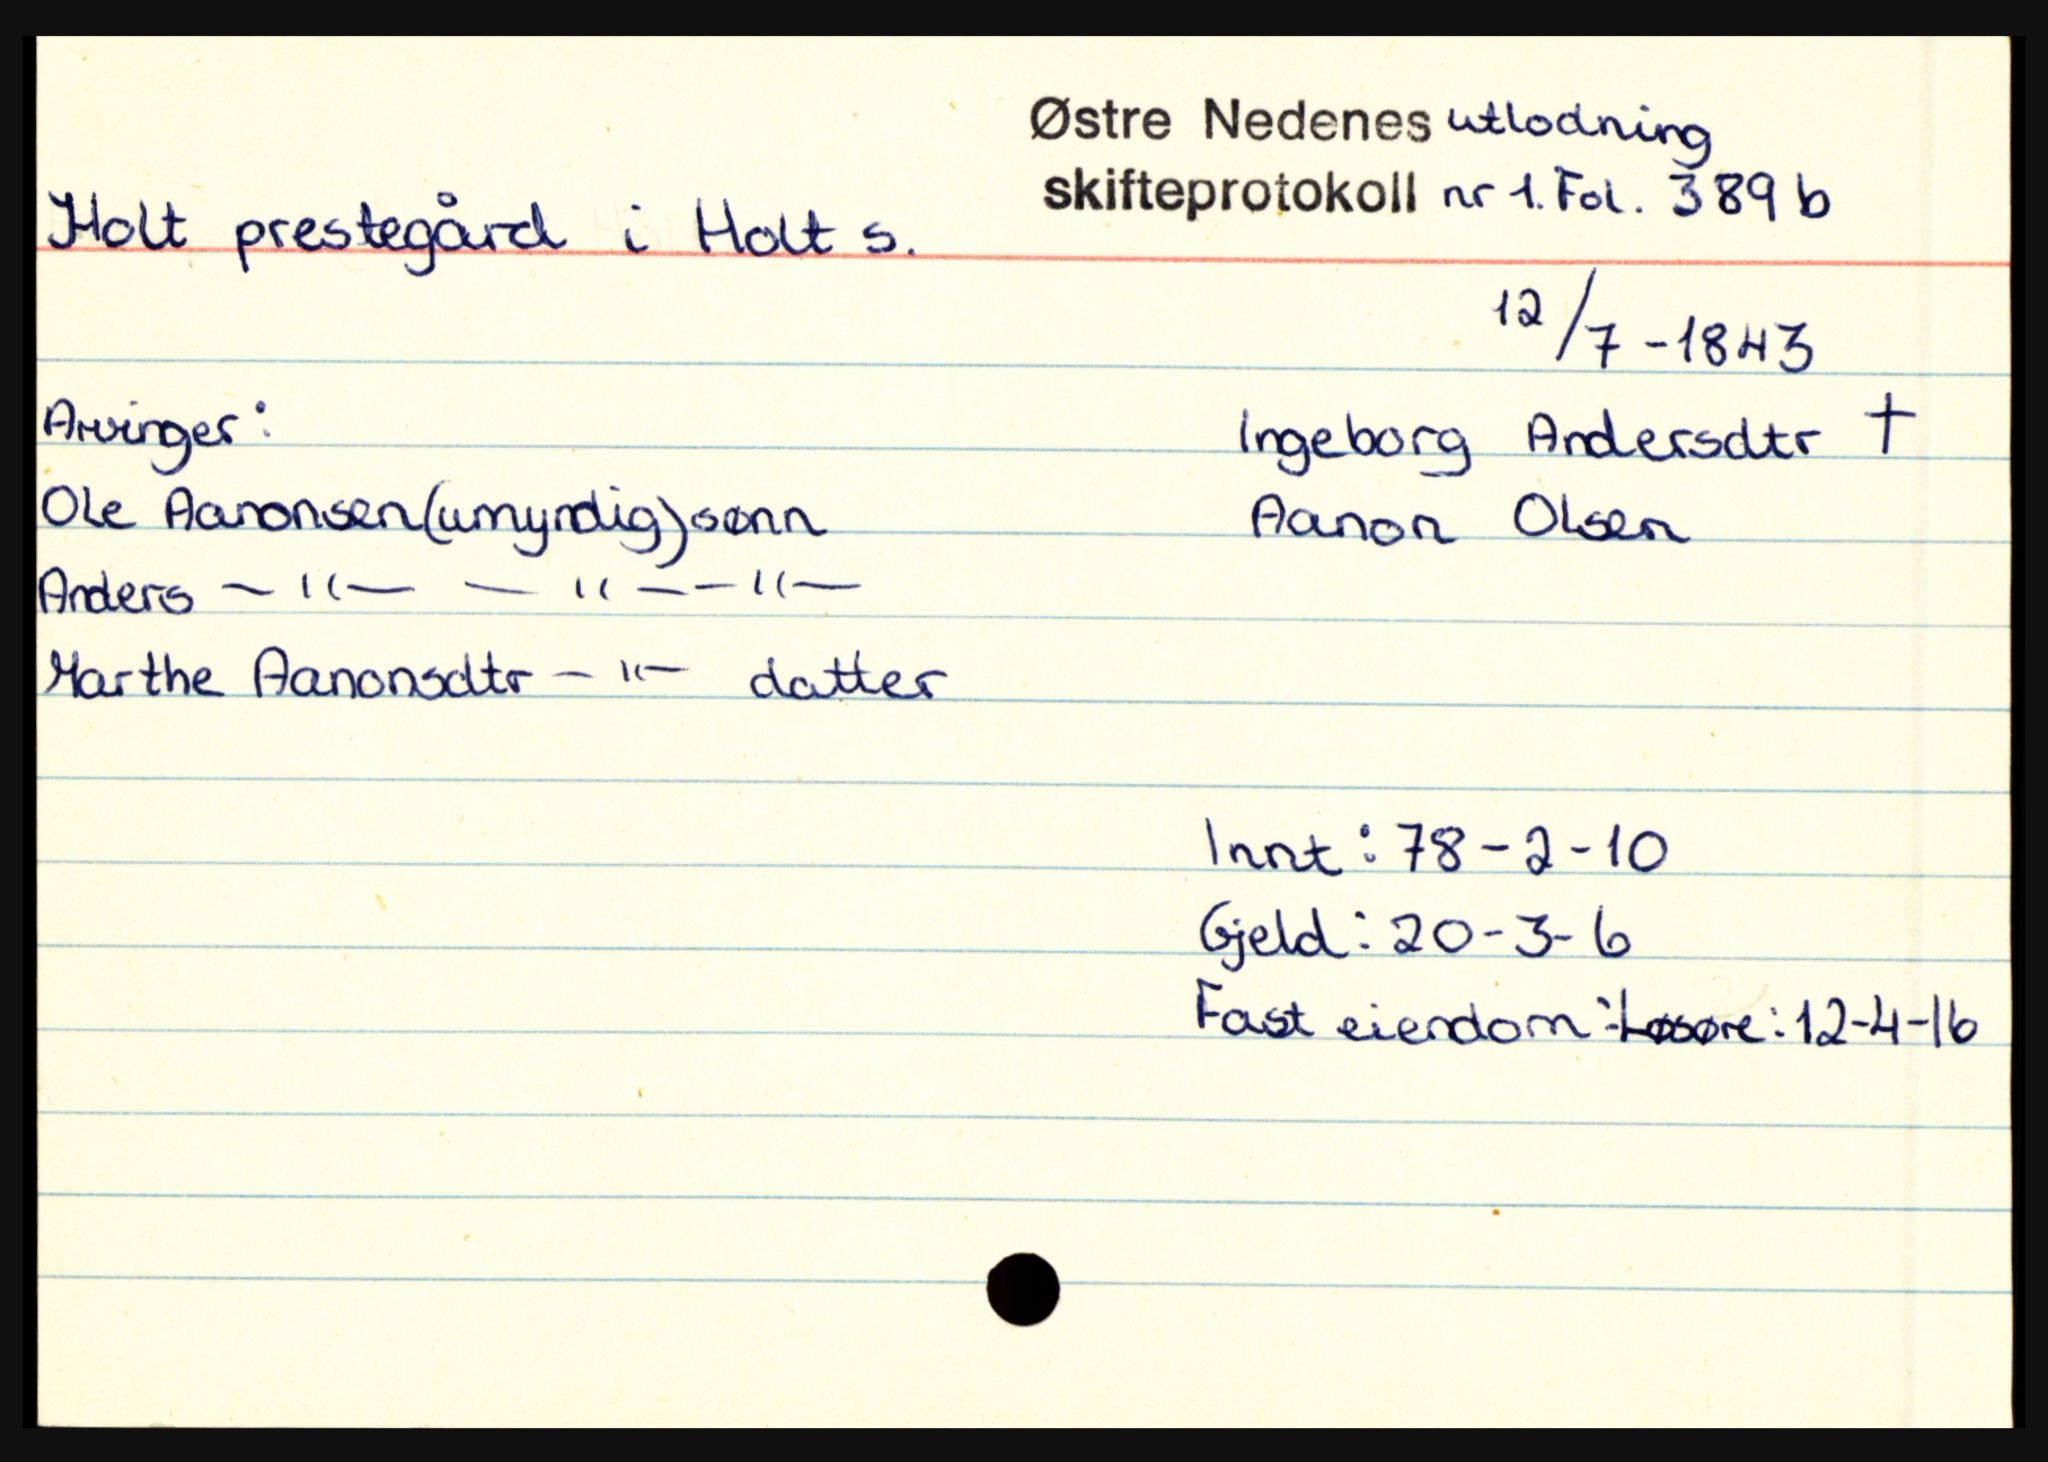 Østre Nedenes utlodning
skifteprotokoll nr 1. Fol. 389 b
Holt prestegård i Holt s.
12/7-1843
Arvinger:
Ingeborg Andersdtr †
Ole Aanonsen (umyndig) sønn
Aanon Olsen
Anders — " — — " — — " —
Marthe Aanonsdtr — " — datter
Innt: 78-2-10
Gjeld: 20-3-6
Fast eiendom: Løsøre: 12-4-16